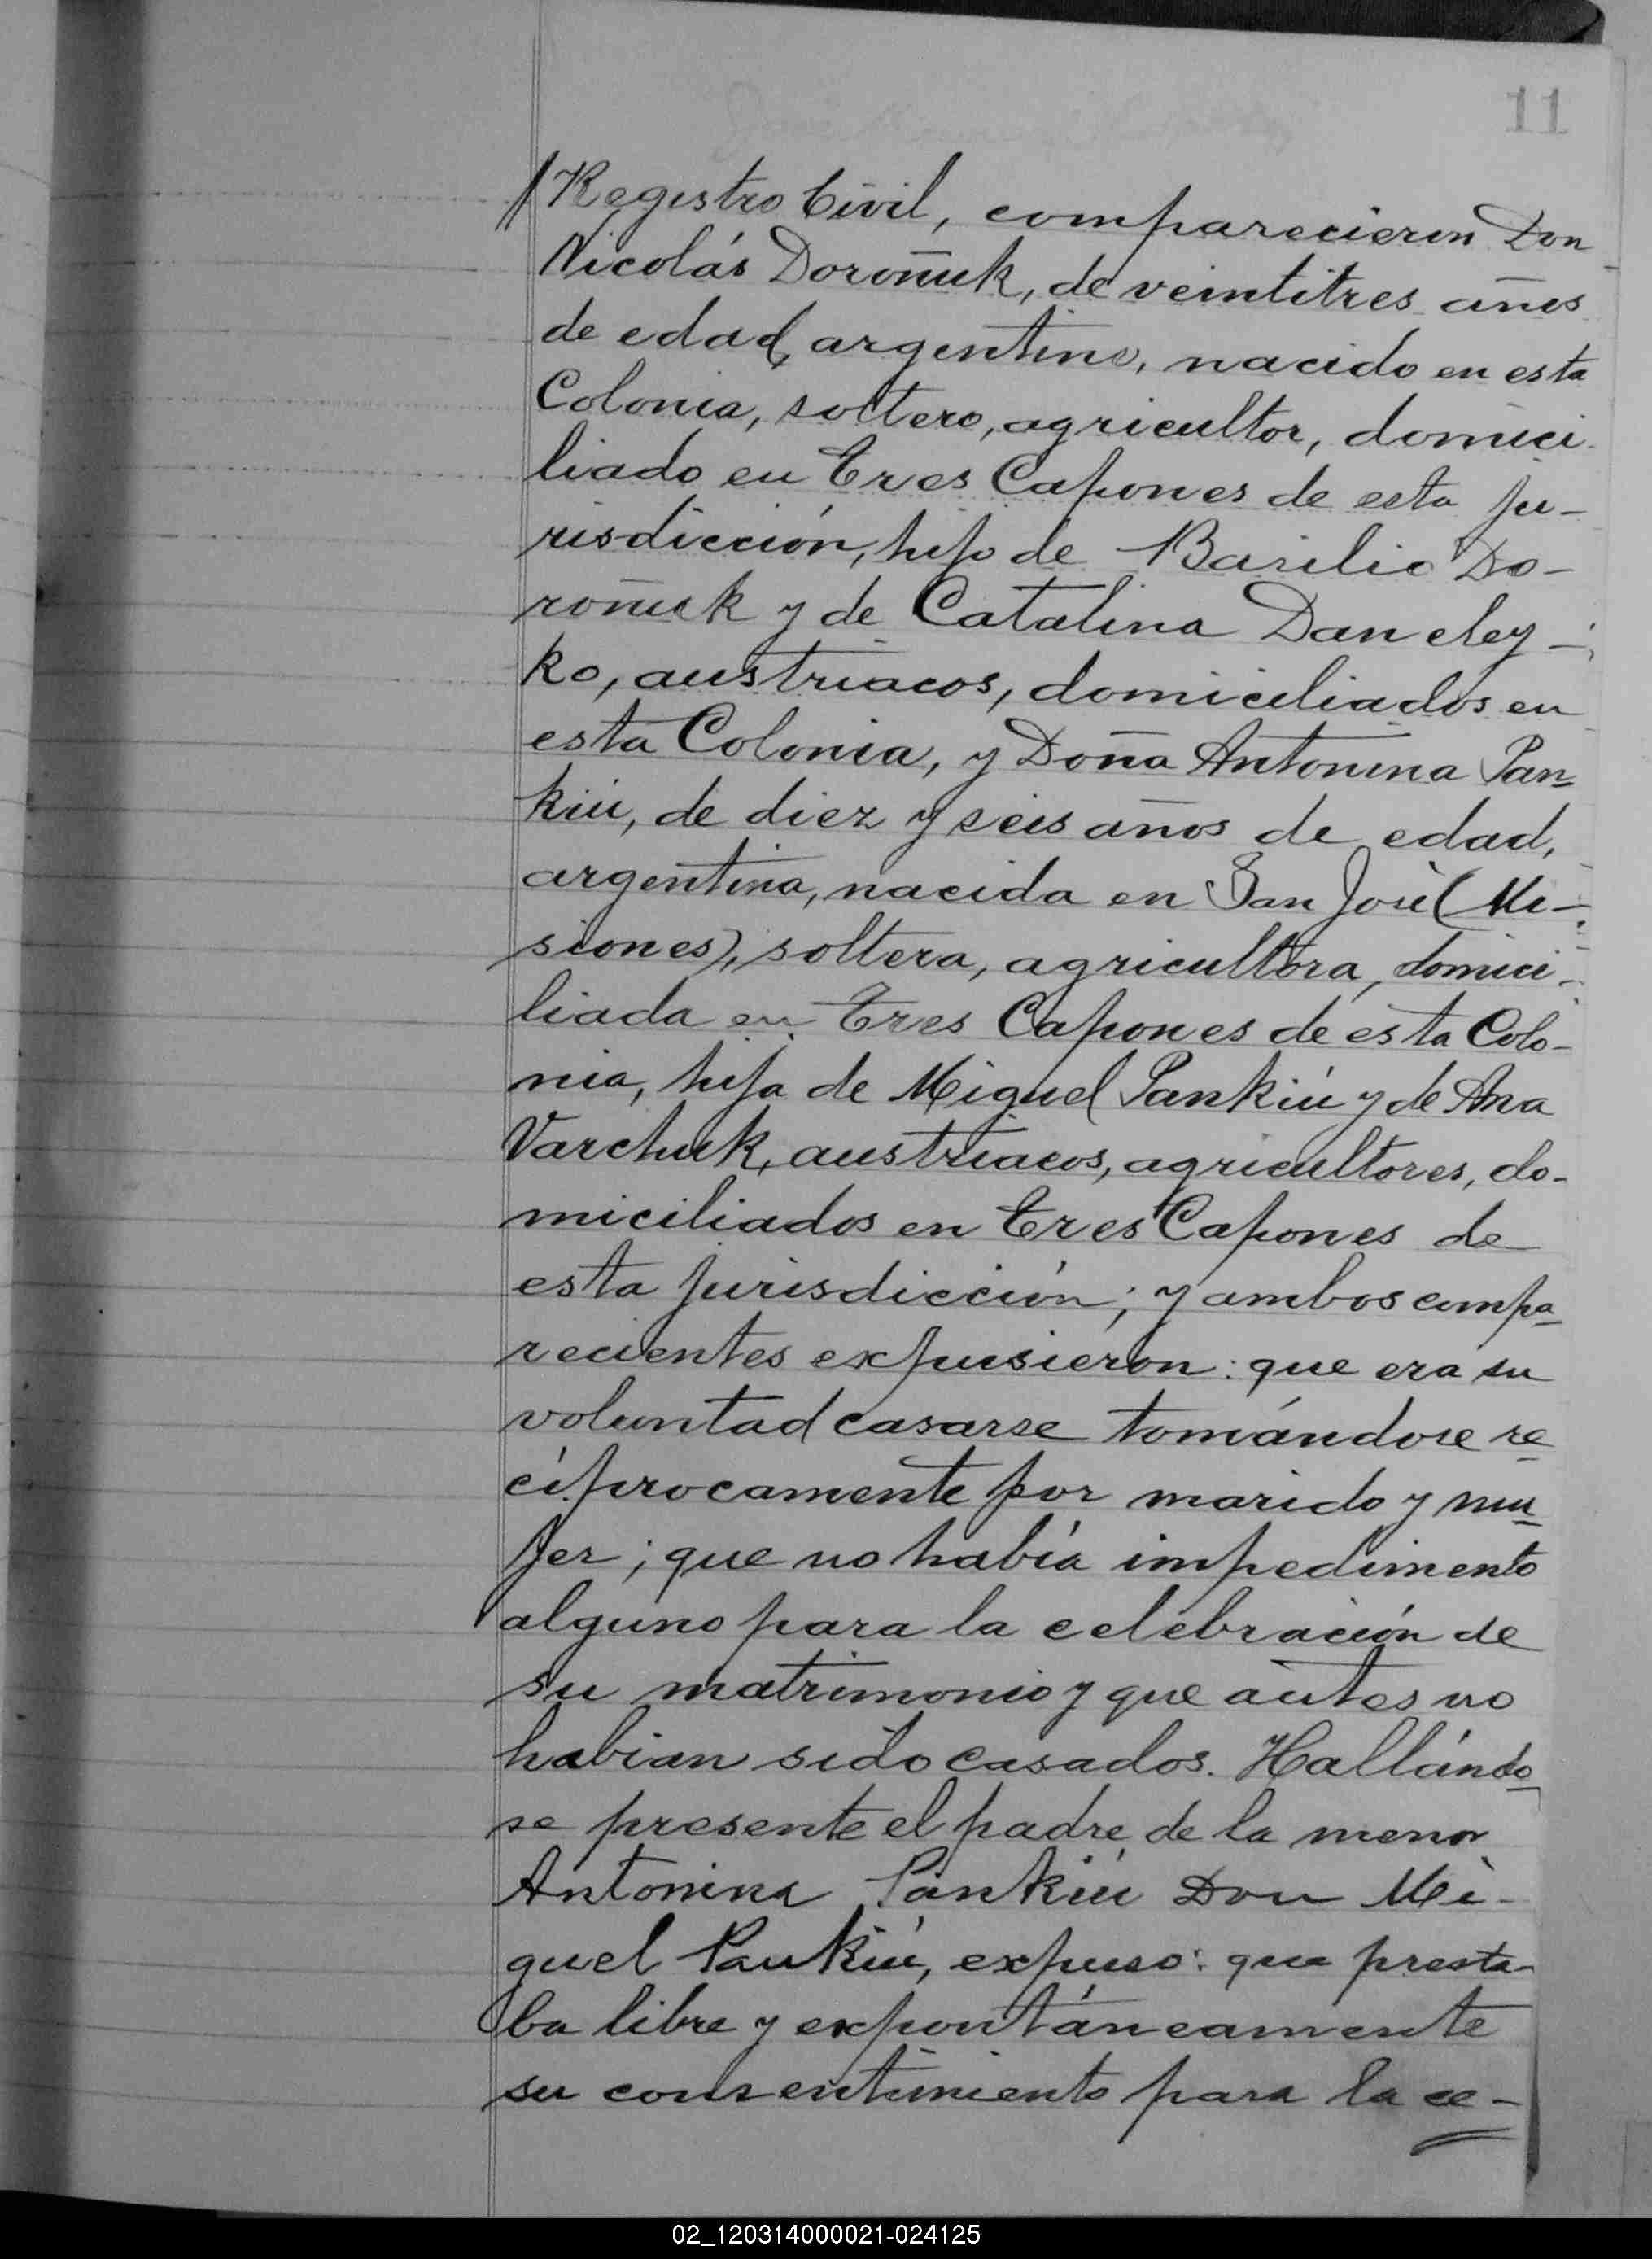 11
Registro Civil, comparecieron Don
Nicolás Doroñuk, de veintitres años
de edad, argentino, nacido en esta
Colonia, soltero, agricultor, domici-
liado en Tres Capones de esta ju-
risdicción, hijo de Basilio Do-
roñuk y de Catalina Daneley-
ko, austriacos, domiciliados en
esta Colonia, y Doña Antonina Pan-
kiú, de diez y seis años de edad,
argentina, nacida en San José (Mi-
siones), soltera, agricultora, domici-
liada en Tres Capones de esta Colo-
nia, hija de Miguel Pankiú y de Ana
Varchuk, austriacos, agricultores, do-
miciliados en Tres Capones de
esta jurisdicción; y ambos compa-
recientes expusieron: que era su
voluntad casarse tomándose re-
cíprocamente por marido y mu-
jer; que no había impedimento
alguno para la celebración de
su matrimonio y que antes no
habian sido casados. Hallándo-
se presente el padre de la menor
Antonina Pankiú Don Mi-
guel Pankiú, expuso: que presta-
ba libre y expontáneamente
su consentimiento para la ce-
02_120314000021-024125